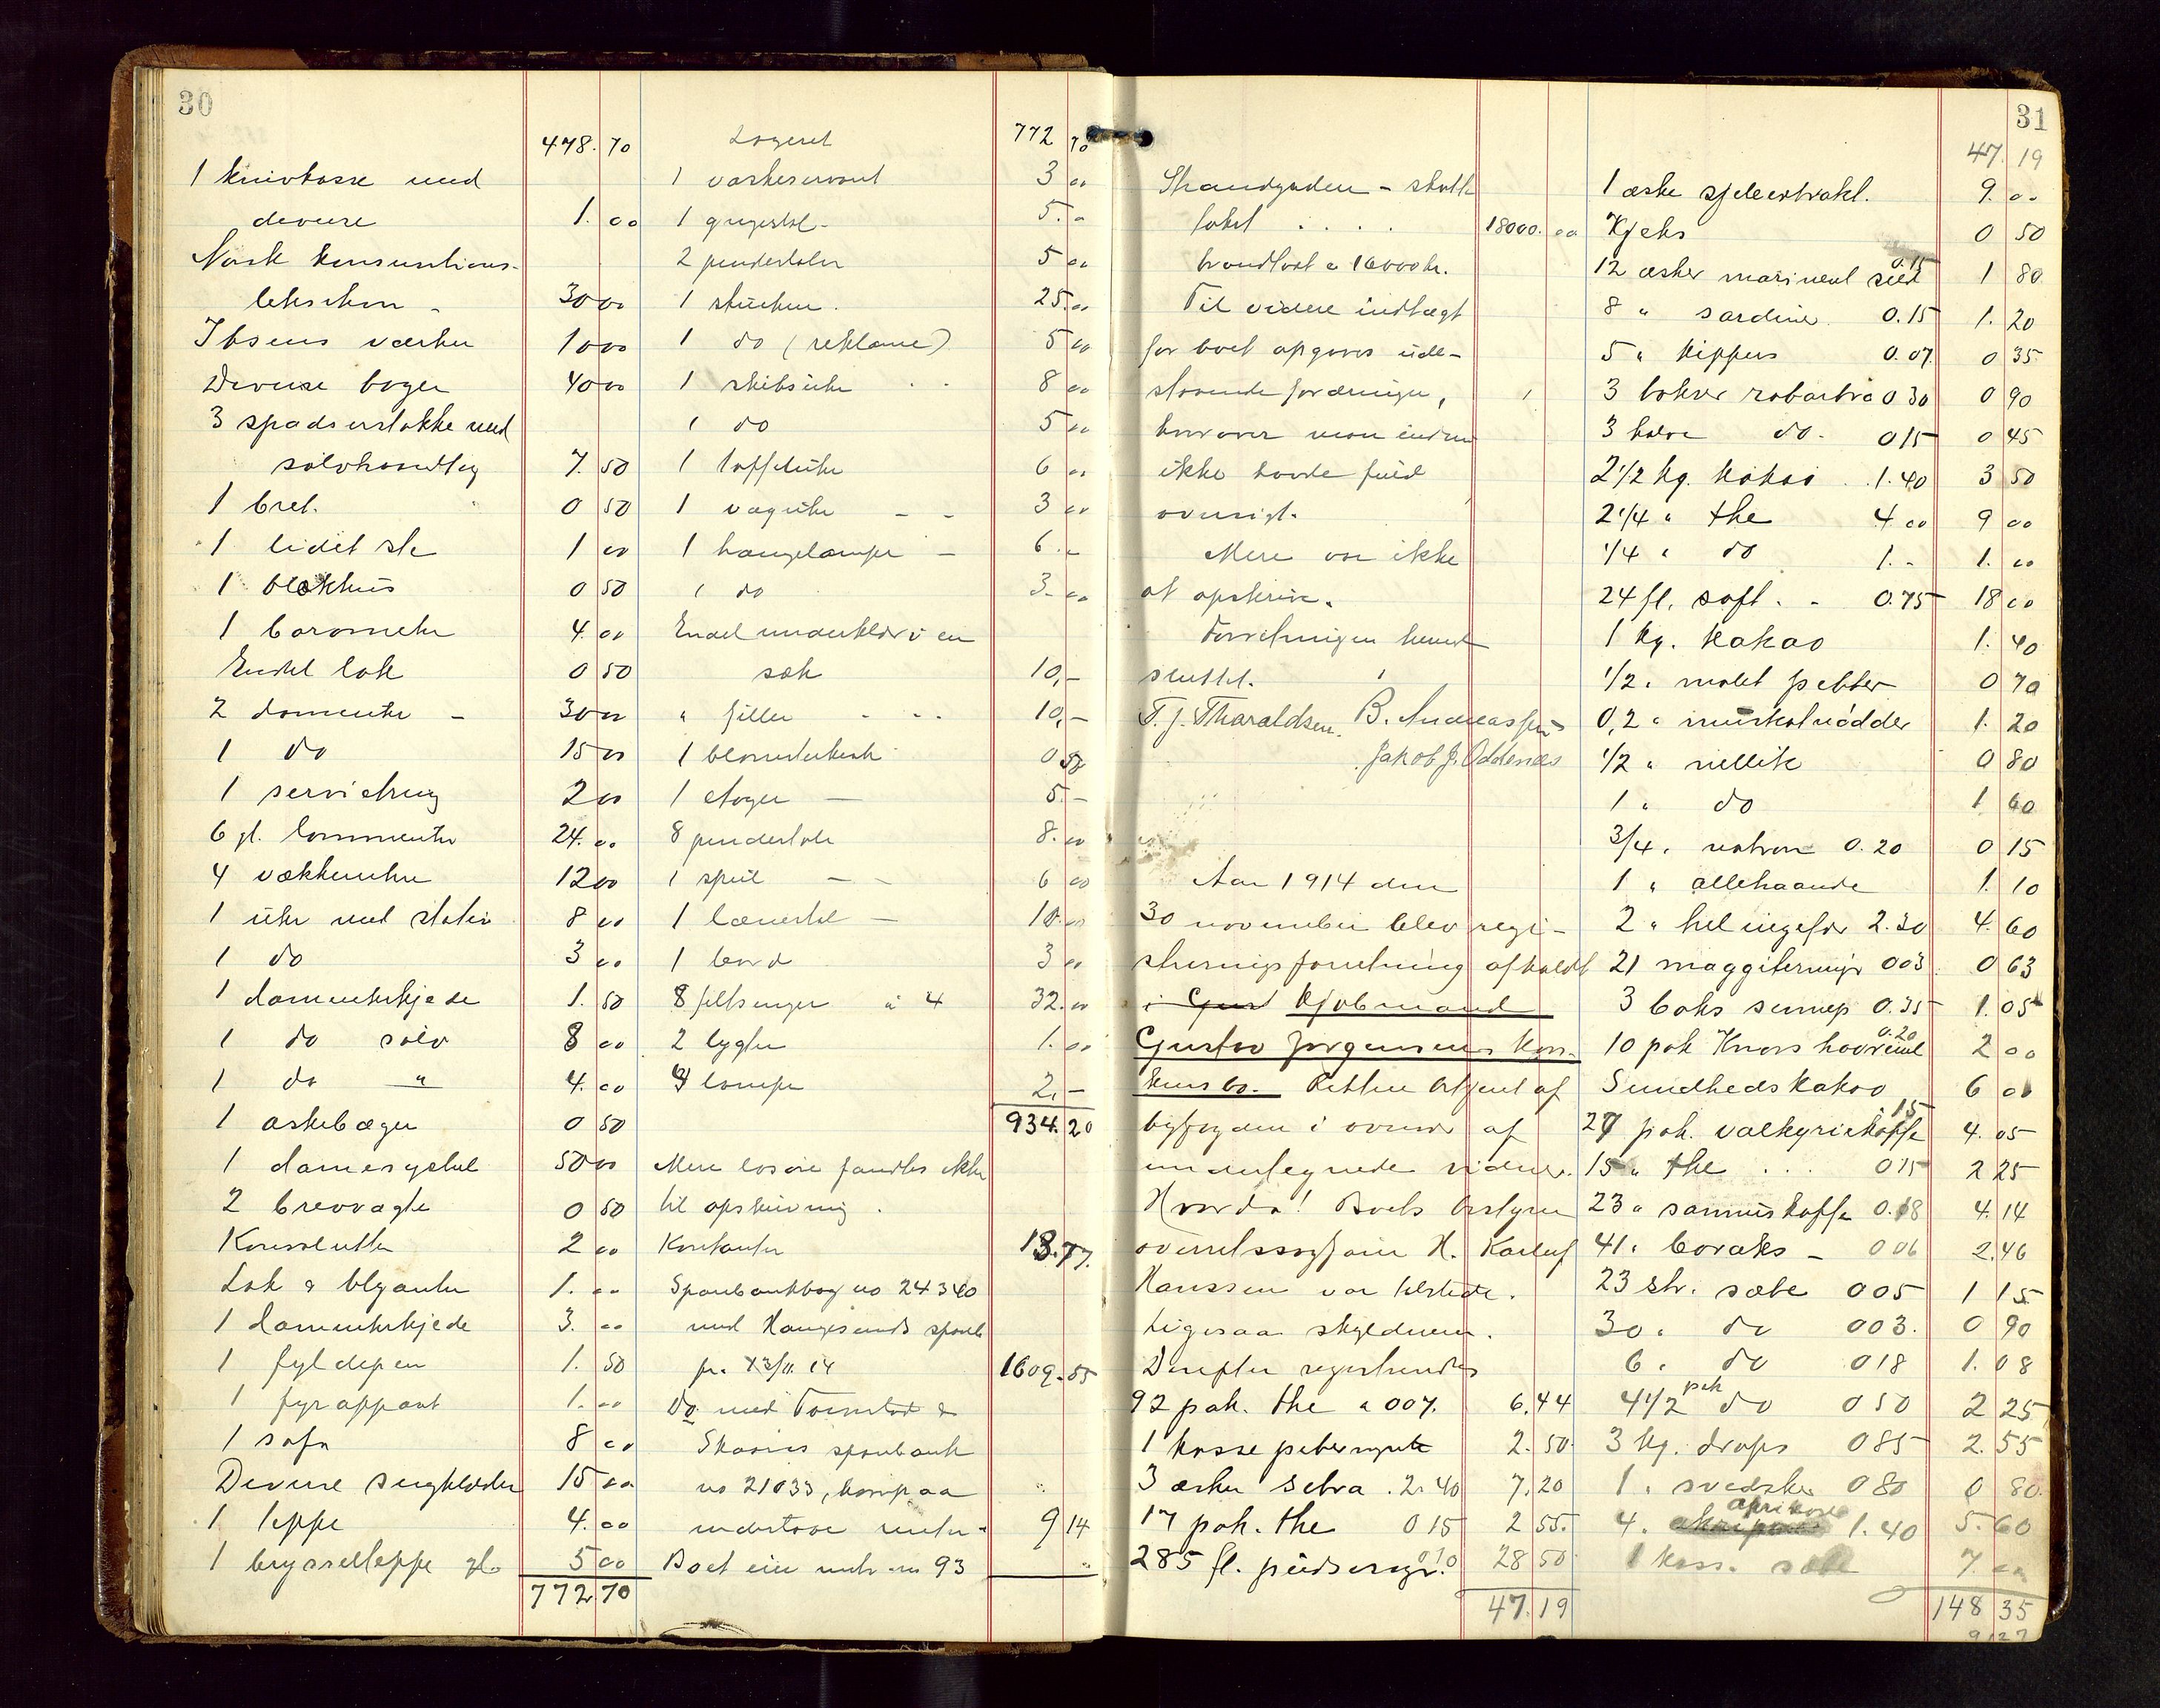 30
478. 70
1 knivkasse med
diverse 1. 00
Norsk konversations-
leksikon - 30 00
Ibsens værker 10 00
Diverse bøger 40 00
3 spadserstokke med
sølvhaandtag 7. 50
1 bret. 0 50
1 lidet ske 1 00
1 blækhus 0 50
1 barometer 4. 00
Endel lak 0 50
2 dameuhr - 30 00
1 do 15 00
1 serviettring 2 00
6 gl. lommeuhr 24. 00
4 vækkeuhre 12 00
1 uhr med stativ 8 00
1 do 3 00
1 dameuhrkjede 1. 50
1 do sølv 8 00
1 do " 4. 00
1 askebæger 0 50
1 damesykkel 50 00
2 brevvægte 0 50
Konvolutter 2 00
Lak & blyanter 1. 00
1 dameuhrkjede 3. 00
1 fyldepen 1. 50
1 fyrapparat 1. 00
1 sofa 8 00
Diverse sengklæder 15 00
1 teppe 4. 00
1 brysselteppe gl. 5 00
772 70
Lageret 772 70
1 vaskeservant 3 00
1 gyngestol - 5. -
2 pindestoler 5 00
1 skrin 25. 00
1 do (reklame) 5 00
1 skibsuhr . . 8 00
1 do 5 00
1 taffeluhr 6 00
1 væguhr - - 3 00
1 hængelampe - 6. -
1 do 3. 00
Endel underklær i en
sæk 10, -
" filler . . . 10, -
1 blomsterkruk 0 50
1 etager - 5. -
8 pindestole 8. 00
1 speil - - 6 00
1 lænestol - 10. 00
1 bord 3 00
8 feltsenger à 4 32. 00
2 lygter 1. 00
4 lamper 2, -
934. 20
Mere løsøre fandtes ikke
til opskrivning .
Kontanter 13. 77.
Sparebankbog no 24340
med Haugesunds spareb
pr. 13/11. 14 1609. 55
Do. med Torvestad &
Skaares sparebank
no 21033, hvorpaa
indestaar 9 14
Boet eier matr. no 93
31
Strandgaden - skatte
takst . . . . 18000. 00
brandtakst 16000 kr.
Til videre indtægt
for boet opgaves ude-
staaende fordringer,
hvorover man endnu
ikke havde fuld
oversigt.
Mere var ikke
at opskrive.
Forretningen hermed
sluttet.
T. J. Tharaldsen. B. Andreassen
Jakob J. Oddenes
Aar 1914 den
30 november blev regi-
streringsforretning afholdt
i Gust Kjøbmand
Gustav Jørgensens kon-
kursbo. Retten betjent af
byfogden i overvær af
undertegnede vidner.
Hvorda! Boets bestyrer
overretssagfører H. Karluf
Hanssen var tilstede.
Ligesaa skyldneren.
Derefter registrertes
92 pak. the a 007. 6. 44
1 kasse pebermynte 2. 50
3 æsker Setra . 2. 40 7. 20
17 pak. the 0 15 2 55.
285 fl. pudsecrem. 0 10 28 50
47. 19
47. 19
1 æske sjeleextrakt. 9. 00
Kjeks 0 50
12 æsker marineret sild 0.15 1 80
8 " sardiner 0.15 1. 20
5 " kippers 0.07 0 35
3 bokser rabarbra 0 30 0 90
3 halve do. 0 15 0 45
2 1/2 kg. kakao . 1. 40 3 50
2 1/4 " the 4 00 9 00
1/4 " do 1. - 1. 00
24 fl. saft . - 0.75 18 00
1 kg. kakao 1. 40
1/2 " malet pepper 0 70
0,2 " muskatnødder 1. 20
1/2 " nellik 0 80
1 " do 1 60
3/4 " natron 0. 20 0 15
1 " allehaande 1. 10
2 " hel ingefær 2. 30 4. 60
21 maggiterninger 003 0 63
3 boks sennep 0.35 1. 05
10 pak Knorr havremel 0.20 2 00
Sundhedskakao 6 00
27 pak. valkyriekaffe 15 4. 05
15 " the . . . 0 15 2 25
23 " sanuskaffe 0.18 4. 14
41 " boraks - 0 06 2. 46
23 str. sæbe 0 05 1 15
30 " do 0 03. 0 90
6 " do 0 18 1. 08
4 1/2 pak do 0 50 2 25
3 kg. drops 0 85 2. 55
1 " svedsker 0 80 0 80
4 " aprikoser 1. 40 5. 60
1 kass. sæbe 7. 00
148 35